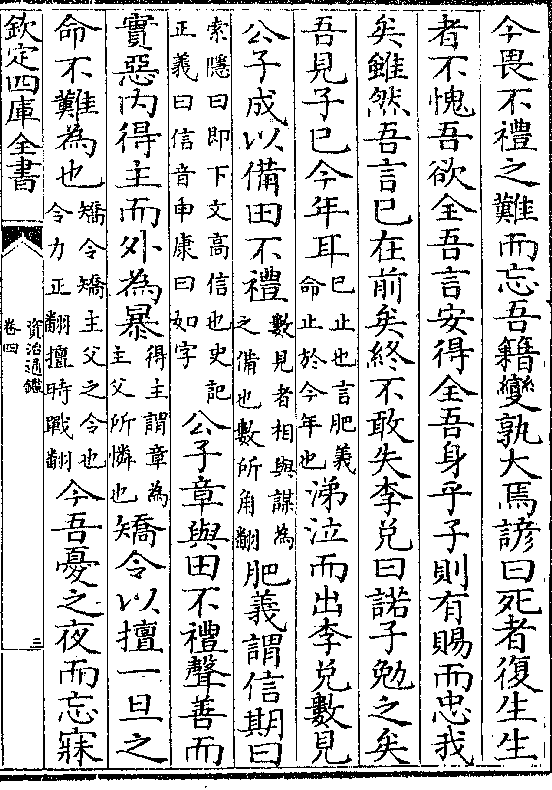 今畏不禮之難而忘吾籍變孰大焉諺曰死者復生生
者不愧吾欲全吾言安得全吾身乎子則有賜而忠我
矣雖然吾言已在前矣終不敢失李兌曰諾子勉之矣
吾見子已今年耳已止也言肥義命止於今年也涕泣而出李兌數見
公子成以備田不禮數見者相與謀為之備也數所角翻肥義謂信期曰
索隱曰即下文高信也史記正義曰信音申康曰如字公子章與田不禮聲善而
實惡内得主而外為暴得主謂章為主父所憐也矯令以擅一旦之
命不難為也矯令矯主父之令也令力正翻擅時戰翻今吾憂之夜而忘寐
欽定四庫全書
資治通鑑
卷四
三